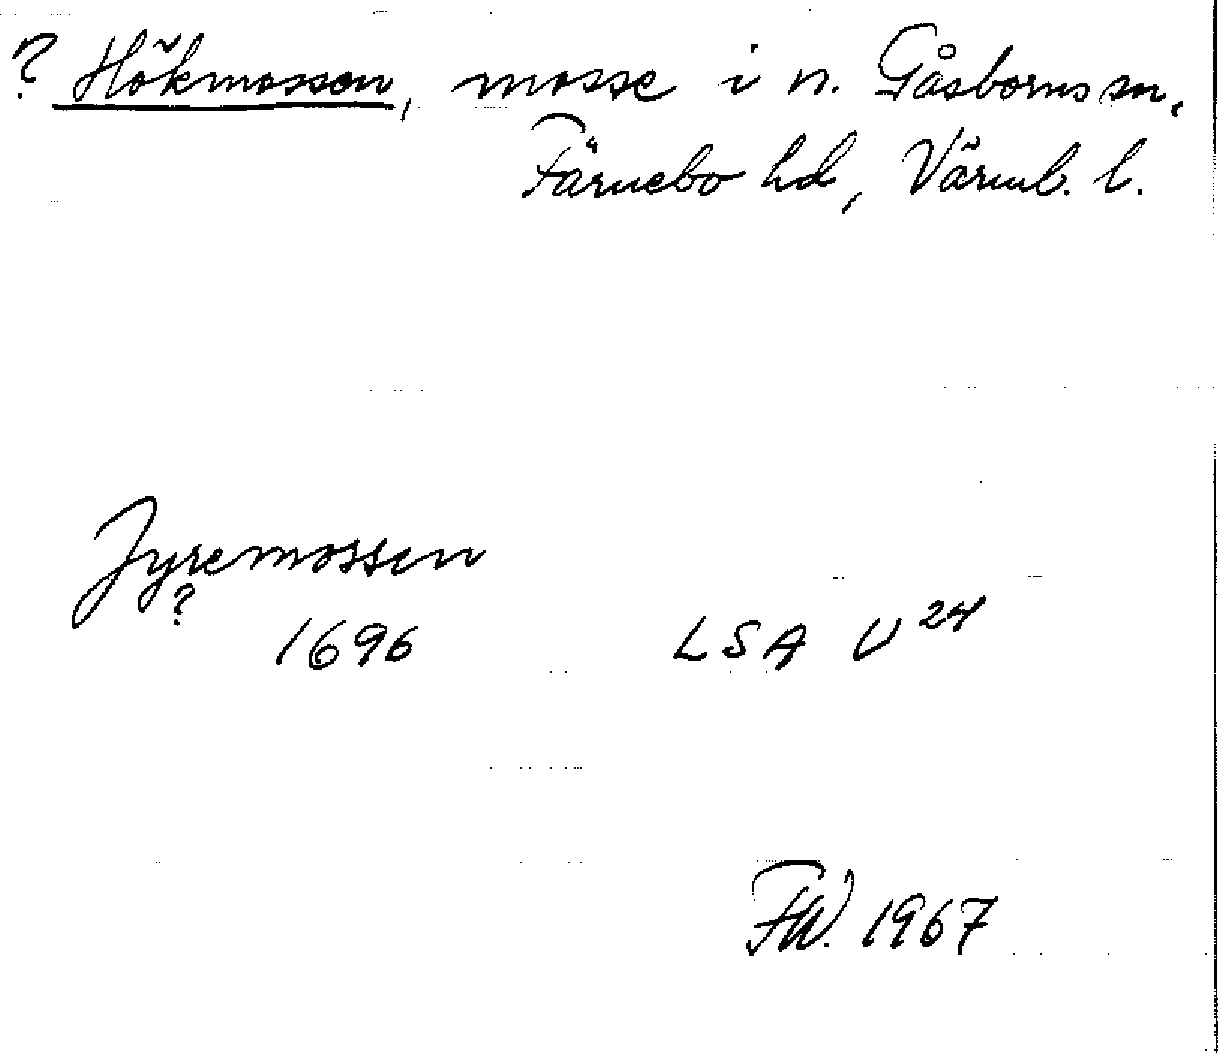 ? Hökmossen, mosse i n. Gåsborns sn,
Färnebo hd, Värml. l.
Jyremossen
?
1696 LSA U 24
FW. 1967